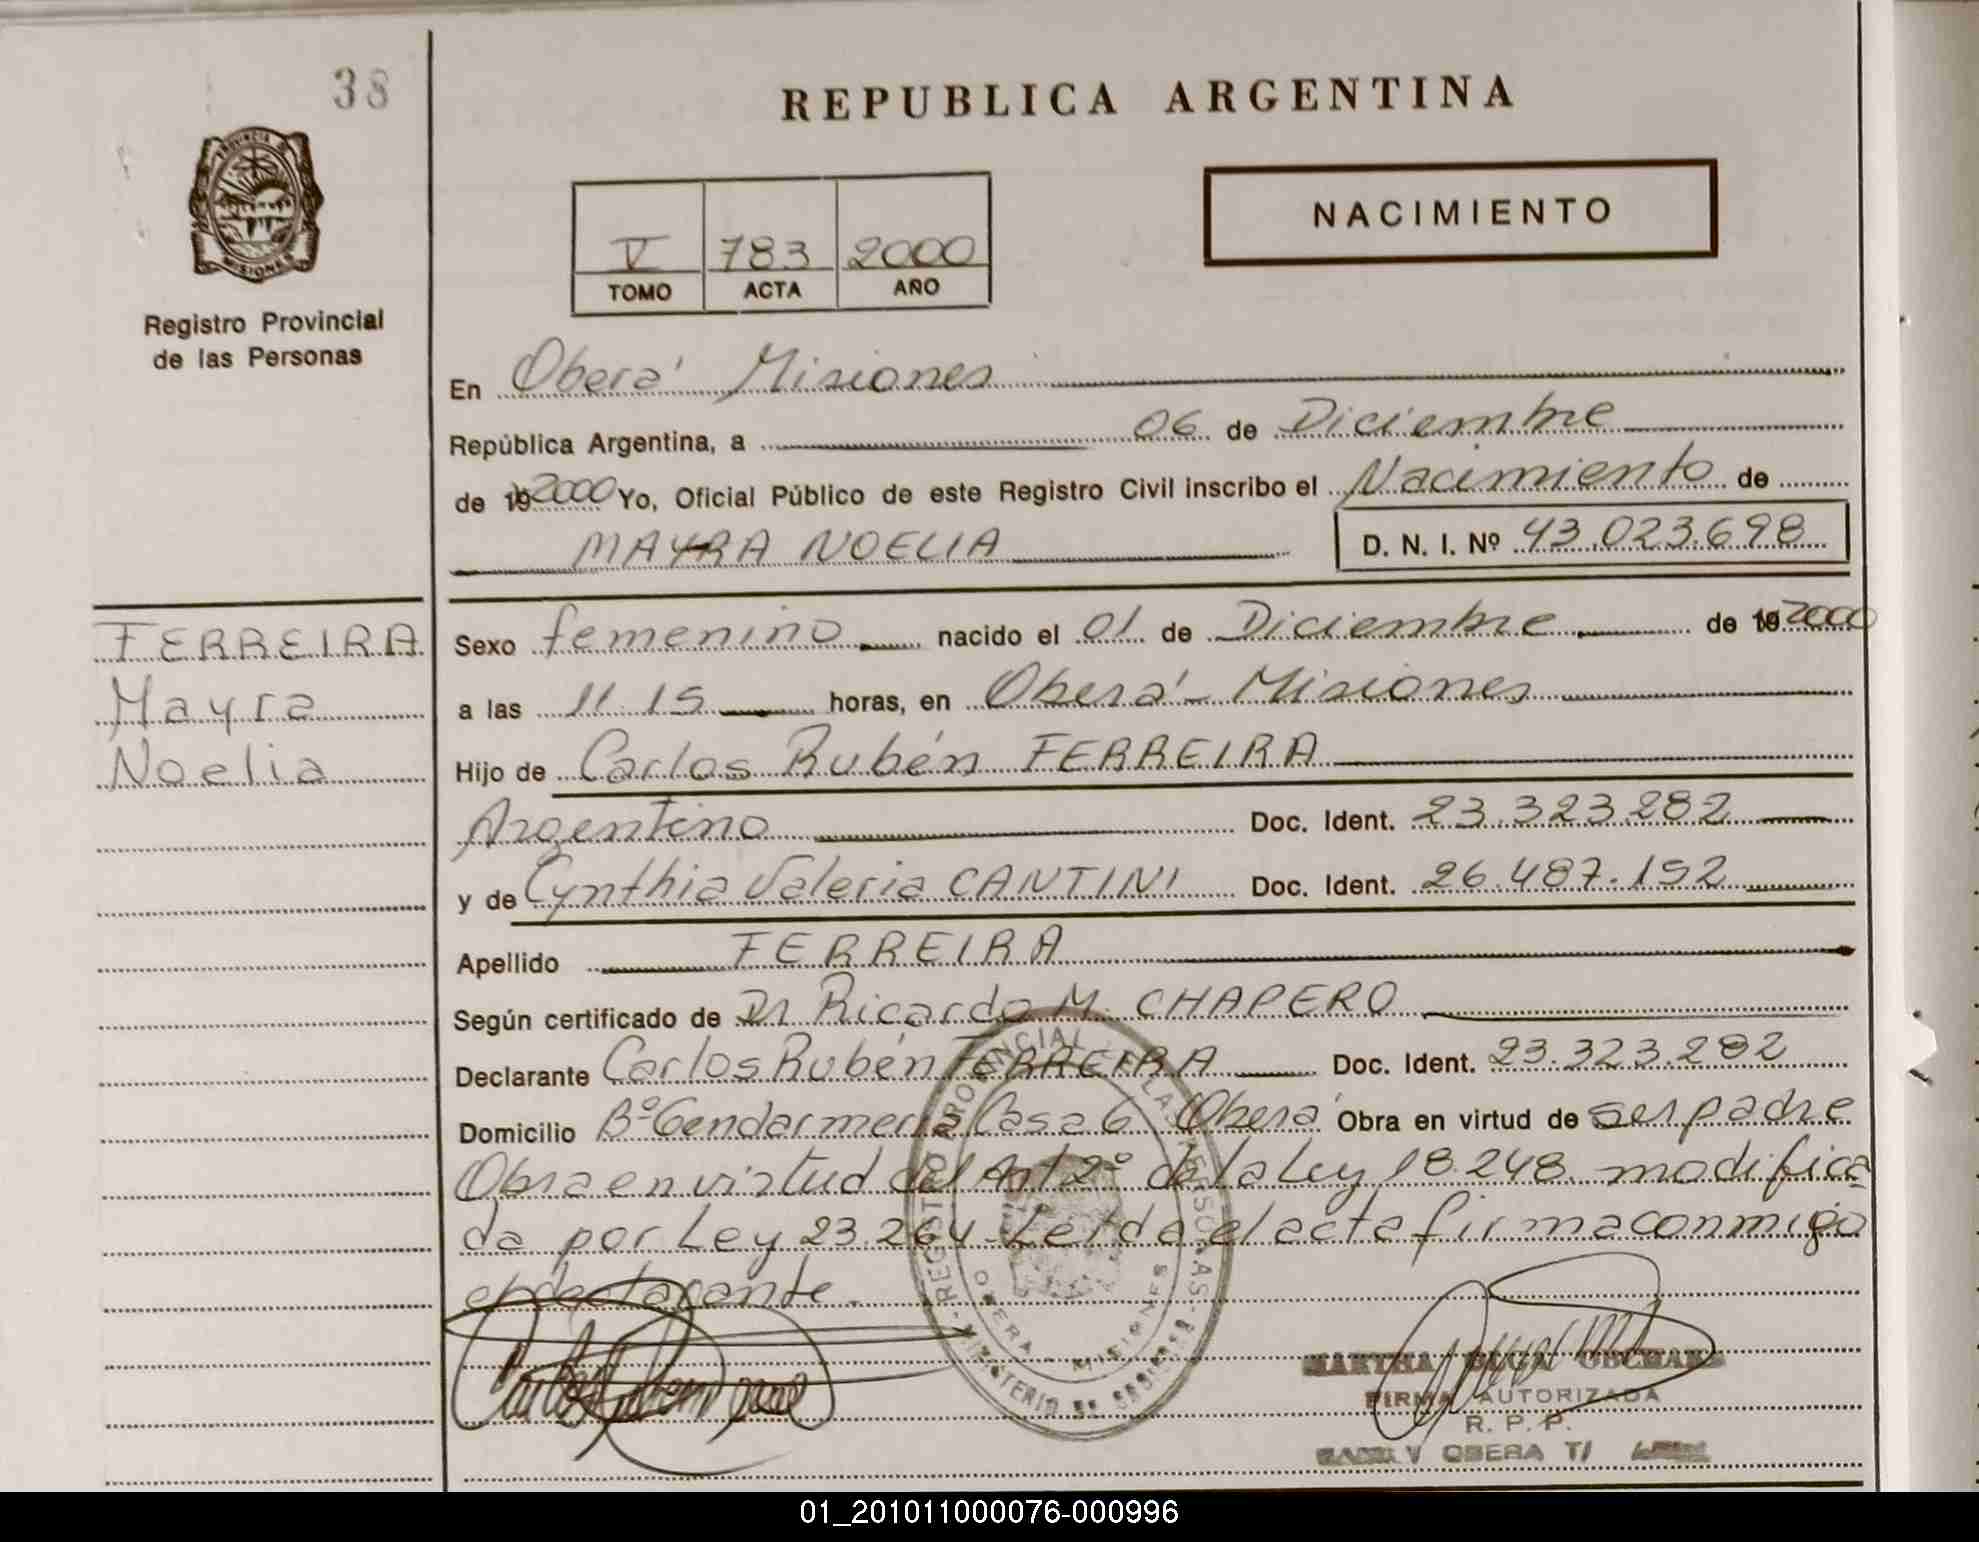 38
REPUBLICA ARGENTINA
PROVINCIA DE
MISIONES
Registro Provincial
de las Personas
V 783 2000
TOMO ACTA AÑO
NACIMIENTO
En Oberá Misiones
República Argentina, a 06 de Diciembre
de 19 2000 Yo, Oficial Público de este Registro Civil inscribo el Nacimiento de
MAYRA NOELIA
D. N. I. Nº 43.023.698
FERREIRA
Mayra
Noelia
Sexo femenino nacido el 01 de Diciembre de 19 2000
a las 11.15 horas, en Oberá - Misiones
Hijo de Carlos Rubén FERREIRA
Argentino Doc. Ident. 23.323.282
y de Cynthia Valeria CANTINI Doc. Ident. 26.487.152
Apellido FERREIRA
Según certificado de Dr Ricardo M. CHAPERO
Declarante Carlos Rubén FERREIRA Doc. Ident. 23.323.282
Domicilio Bº Gendarmería Casa 6 Oberá Obra en virtud de ser padre
Obra en virtud del Art 2º de la Ley 18.248 modifica
da por Ley 23.264. Leída el acta firma conmigo
el declarante.
REGISTRO PROVINCIAL DE LAS PERSONAS - MINISTERIO DE GOBIERNO
OBERA MISIONES
MARTHA OLGA
FIRMA AUTORIZADA
R. P. P.
OBERA
01_201011000076-000996